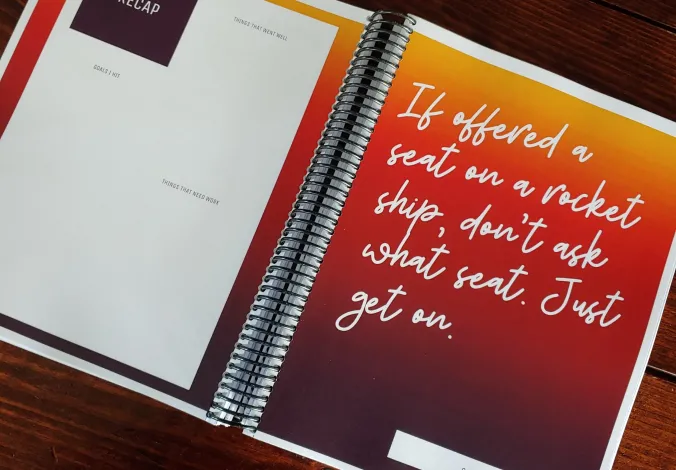 RECAP
THINGS THAT WENT WELL
GOALS I HIT
THINGS THAT NEED WORK
If offered a
seat on a rocket
ship, don't ask
what seat. Just
get on.